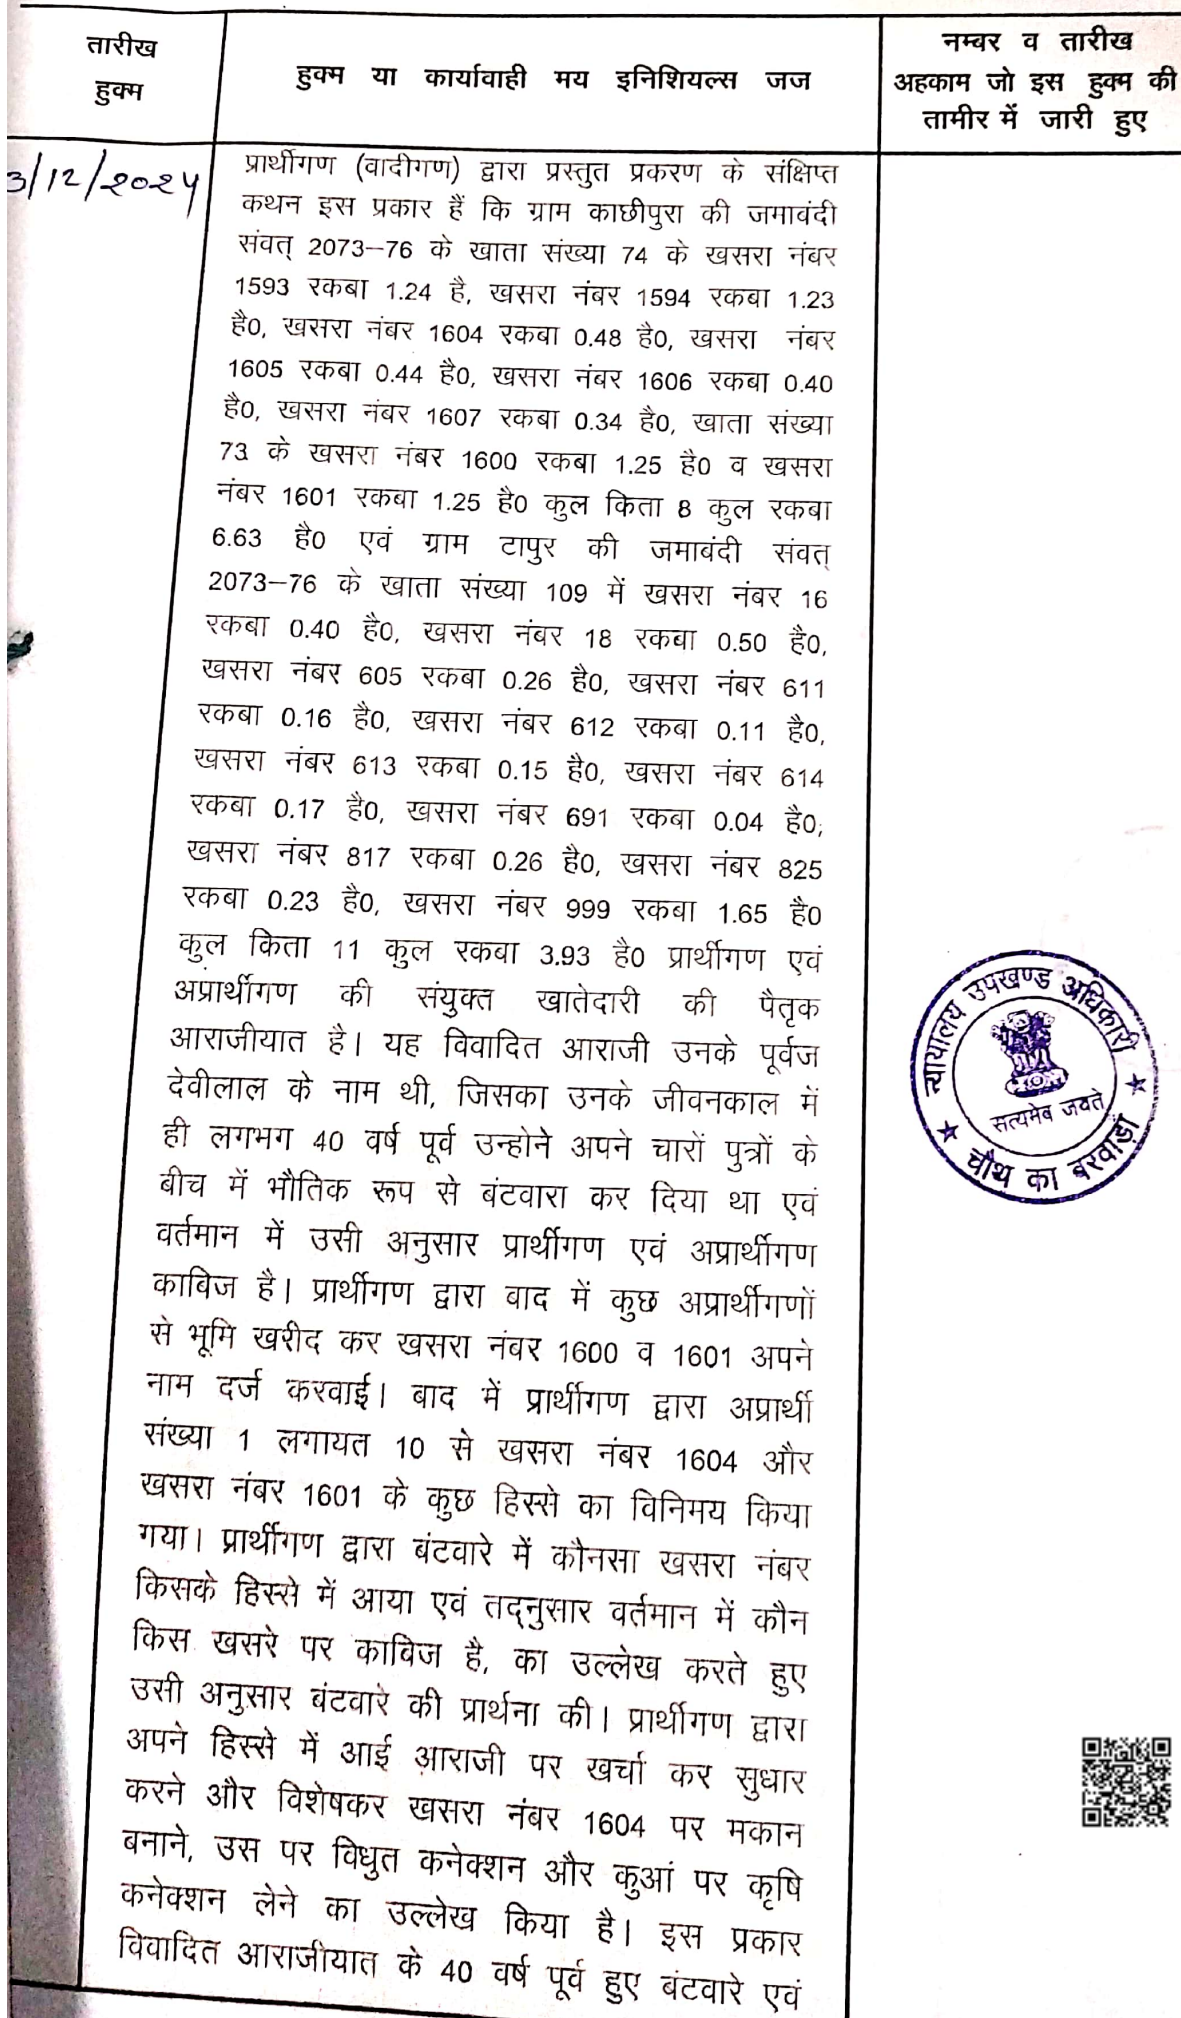 तारीख
हुक्म
हुक्म या कार्यावाही मय इनिशियल्स जज
नम्बर व तारीख
अहकाम जो इस हुक्म की
तामीर में जारी हुए
3/12/2024
प्रार्थीगण (वादीगण) द्वारा प्रस्तुत प्रकरण के संक्षिप्त
कथन इस प्रकार हैं कि ग्राम काछीपुरा की जमाबंदी
संवत् 2073–76 के खाता संख्या 74 के खसरा नंबर
1593 रकबा 1.24 है, खसरा नंबर 1594 रकबा 1.23
है0, खसरा नंबर 1604 रकबा 0.48 है0, खसरा नंबर
1605 रकबा 0.44 है0, खसरा नंबर 1606 रकबा 0.40
है0, खसरा नंबर 1607 रकबा 0.34 है0, खाता संख्या
73 के खसरा नंबर 1600 रकबा 1.25 है0 व खसरा
नंबर 1601 रकबा 1.25 है0 कुल किता 8 कुल रकबा
6.63 है0 एवं ग्राम टापुर की जमाबंदी संवत्
2073–76 के खाता संख्या 109 में खसरा नंबर 16
रकबा 0.40 है0, खसरा नंबर 18 रकबा 0.50 है0,
खसरा नंबर 605 रकबा 0.26 है0, खसरा नंबर 611
रकबा 0.16 है0, खसरा नंबर 612 रकबा 0.11 है0,
खसरा नंबर 613 रकबा 0.15 है0, खसरा नंबर 614
रकबा 0.17 है0, खसरा नंबर 691 रकबा 0.04 है0,
खसरा नंबर 817 रकबा 0.26 है0, खसरा नंबर 825
रकबा 0.23 है0, खसरा नंबर 999 रकबा 1.65 है0
कुल किता 11 कुल रकबा 3.93 है0 प्रार्थीगण एवं
अप्रार्थीगण की संयुक्त खातेदारी की पैतृक
आराजीयात है। यह विवादित आराजी उनके पूर्वज
देवीलाल के नाम थी, जिसका उनके जीवनकाल में
ही लगभग 40 वर्ष पूर्व उन्होने अपने चारों पुत्रों के
बीच में भौतिक रूप से बंटवारा कर दिया था एवं
वर्तमान में उसी अनुसार प्रार्थीगण एवं अप्रार्थीगण
काबिज है। प्रार्थीगण द्वारा बाद में कुछ अप्रार्थीगणों
से भूमि खरीद कर खसरा नंबर 1600 व 1601 अपने
नाम दर्ज करवाई। बाद में प्रार्थीगण द्वारा अप्रार्थी
संख्या 1 लगायत 10 से खसरा नंबर 1604 और
खसरा नंबर 1601 के कुछ हिस्से का विनिमय किया
गया। प्रार्थीगण द्वारा बंटवारे में कौनसा खसरा नंबर
किसके हिस्से में आया एवं तद्नुसार वर्तमान में कौन
किस खसरे पर काबिज है, का उल्लेख करते हुए
उसी अनुसार बंटवारे की प्रार्थना की। प्रार्थीगण द्वारा
अपने हिस्से में आई आराजी पर खर्चा कर सुधार
करने और विशेषकर खसरा नंबर 1604 पर मकान
बनाने, उस पर विधुत कनेक्शन और कुआं पर कृषि
कनेक्शन लेने का उल्लेख किया है। इस प्रकार
विवादित आराजीयात के 40 वर्ष पूर्व हुए बंटवारे एवं
न्यायालय उपखण्ड अधिकारी
सत्यमेव जयते
चौथ का बरवाड़ा